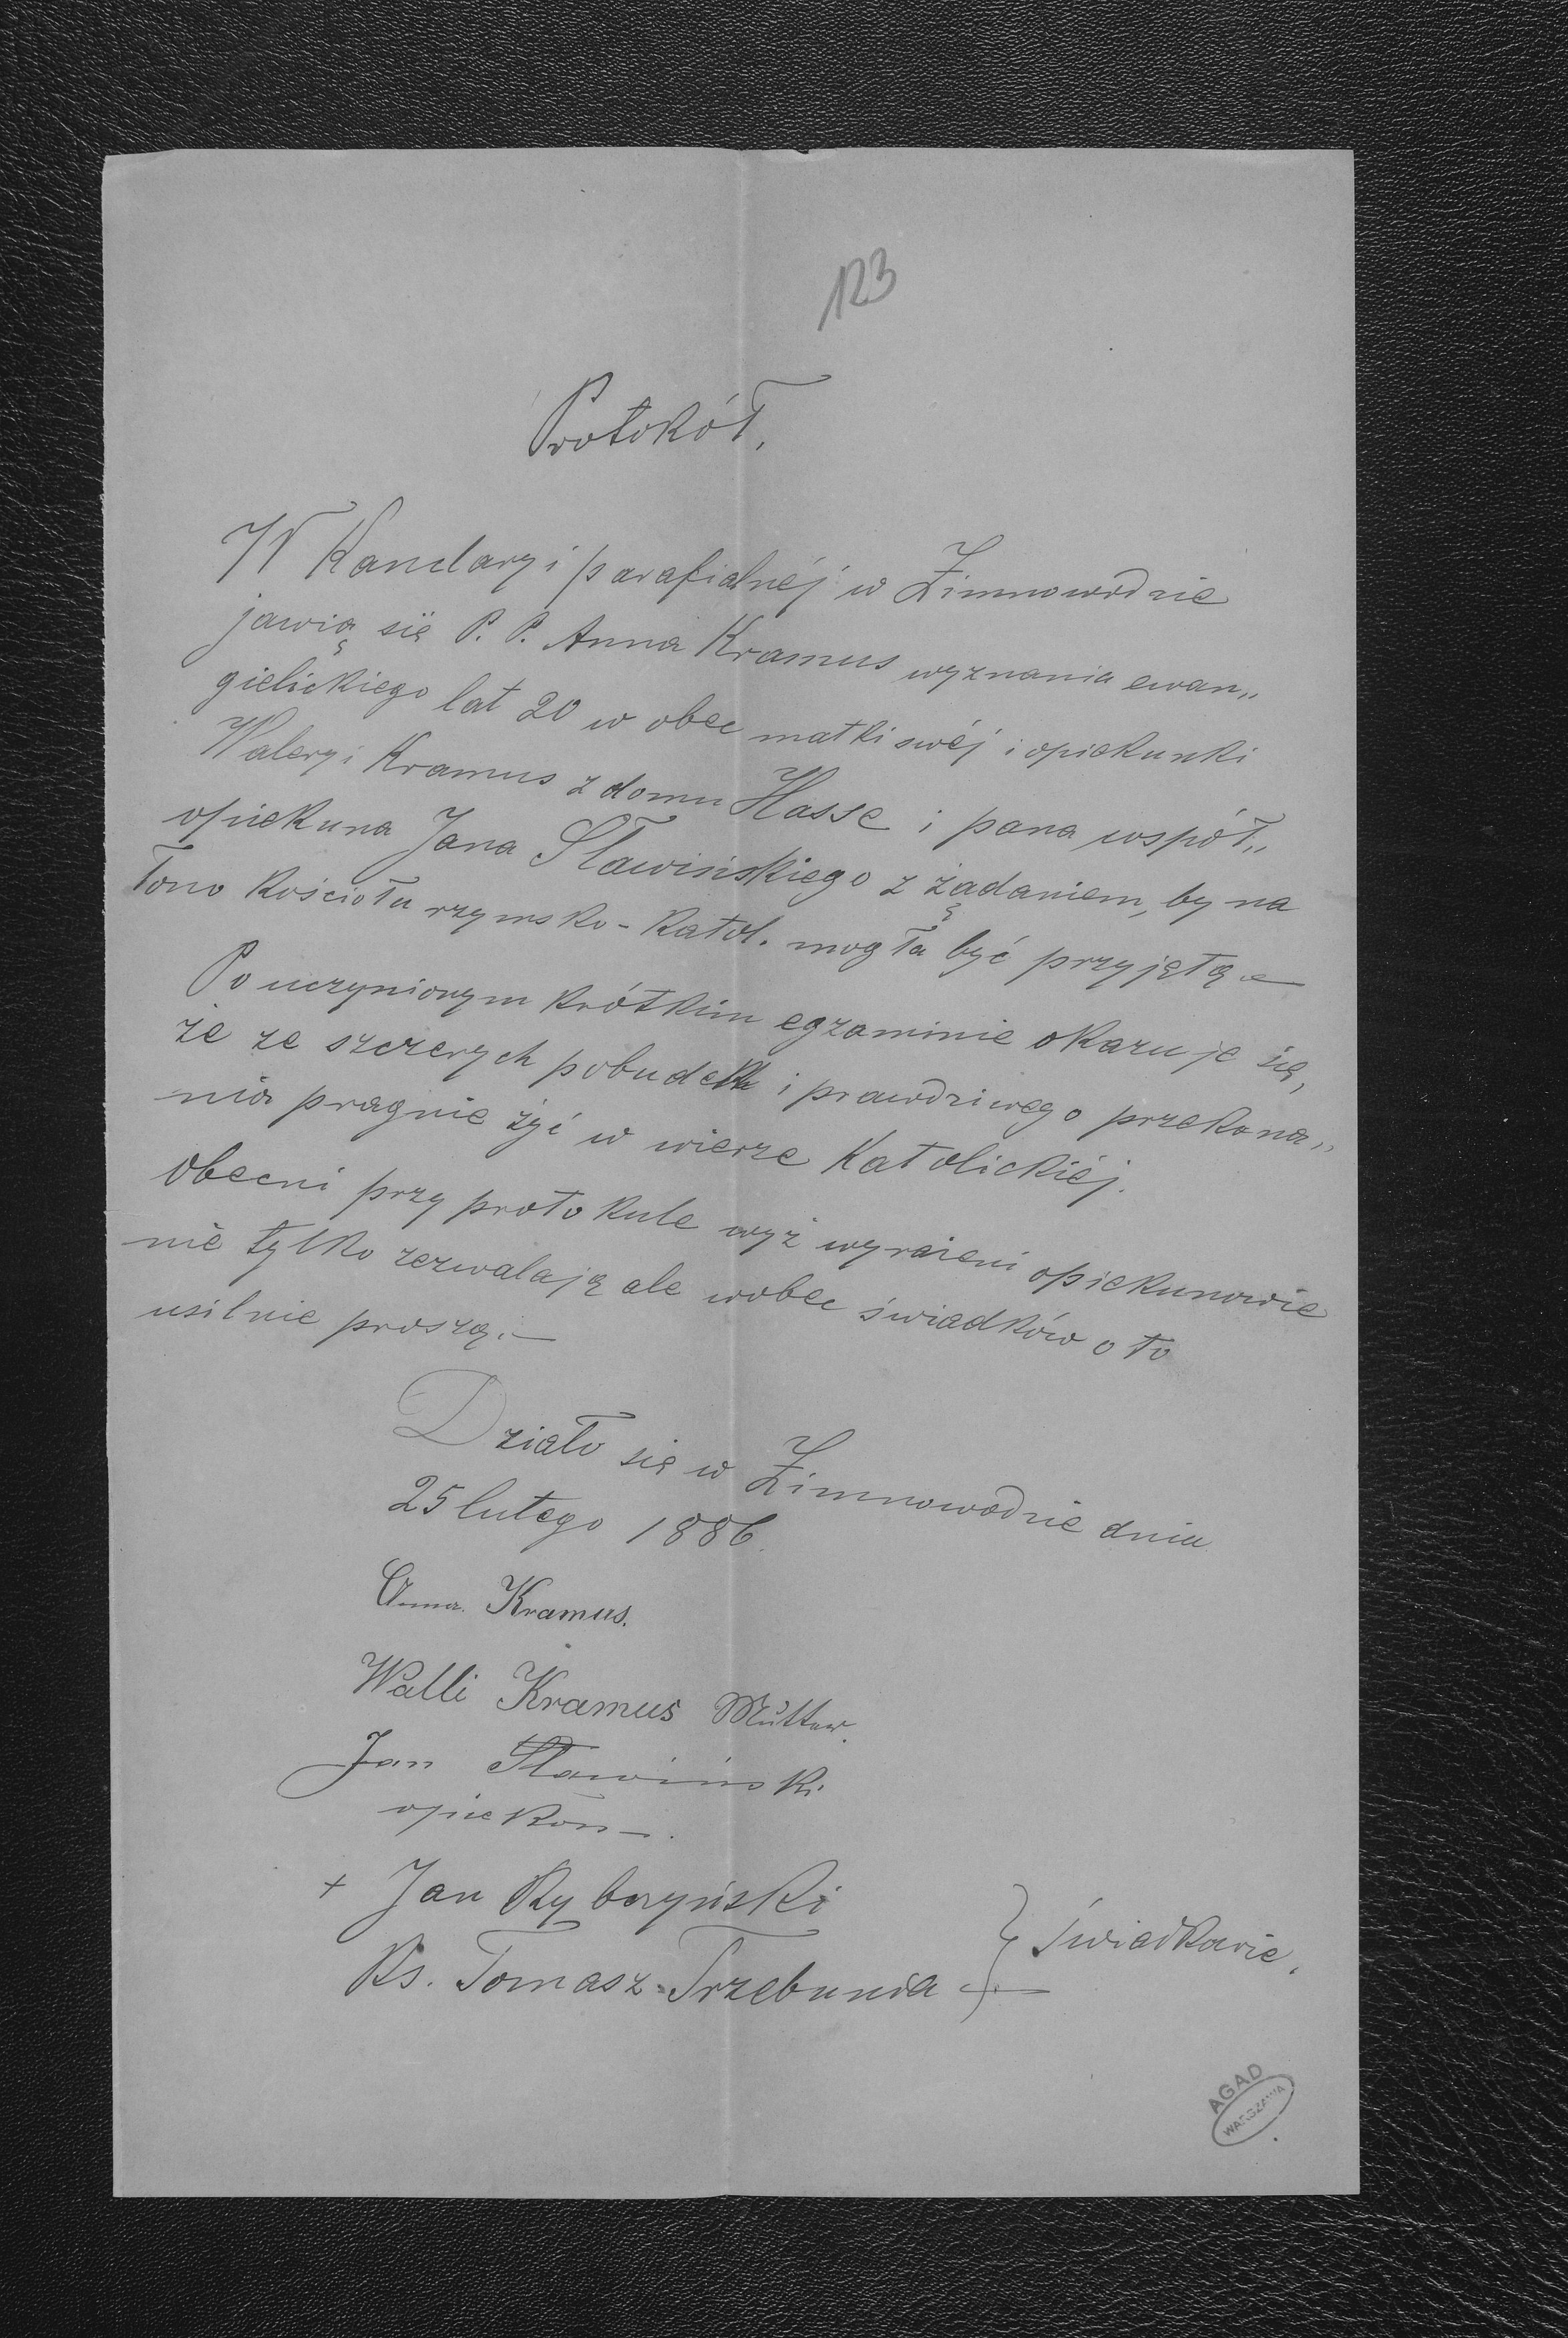 123
Protokół.
W Kancelaryi parafialnéj w Zimnowodzie
jawią się P. P. Anna Kramus wyznania ewan„
gielickiego lat 20 w obec matki swéj i opiekunki
Waleryi Kramus z domu Hasse i pana współ„
opiekuna Jana Sławińskiego z żądaniem, by na
łono Kościoła rzymsko-katol. mogła być przyjętą. —
Po uczynionym krótkim egzaminie okazuje się,
że ze szczerych pobudek i prawdziwego przekona„
nia pragnie żyć w wierze Katolickiéj.
Obecni przy protokule wyż wyrażeni opiekunowie
nie tylko zezwalają ale wobec świadków o to
usilnie proszą. —
Działo się w Zimnowodzie dnia
25 lutego 1886.
Anna Kramus.
Walli Kramus Mutter.
Jan Sławiński
opiekon —.
+ Jan Rybczyński
Ks. Tomasz Trzebunia } świadkowie.
AGAD
WARSZAWA